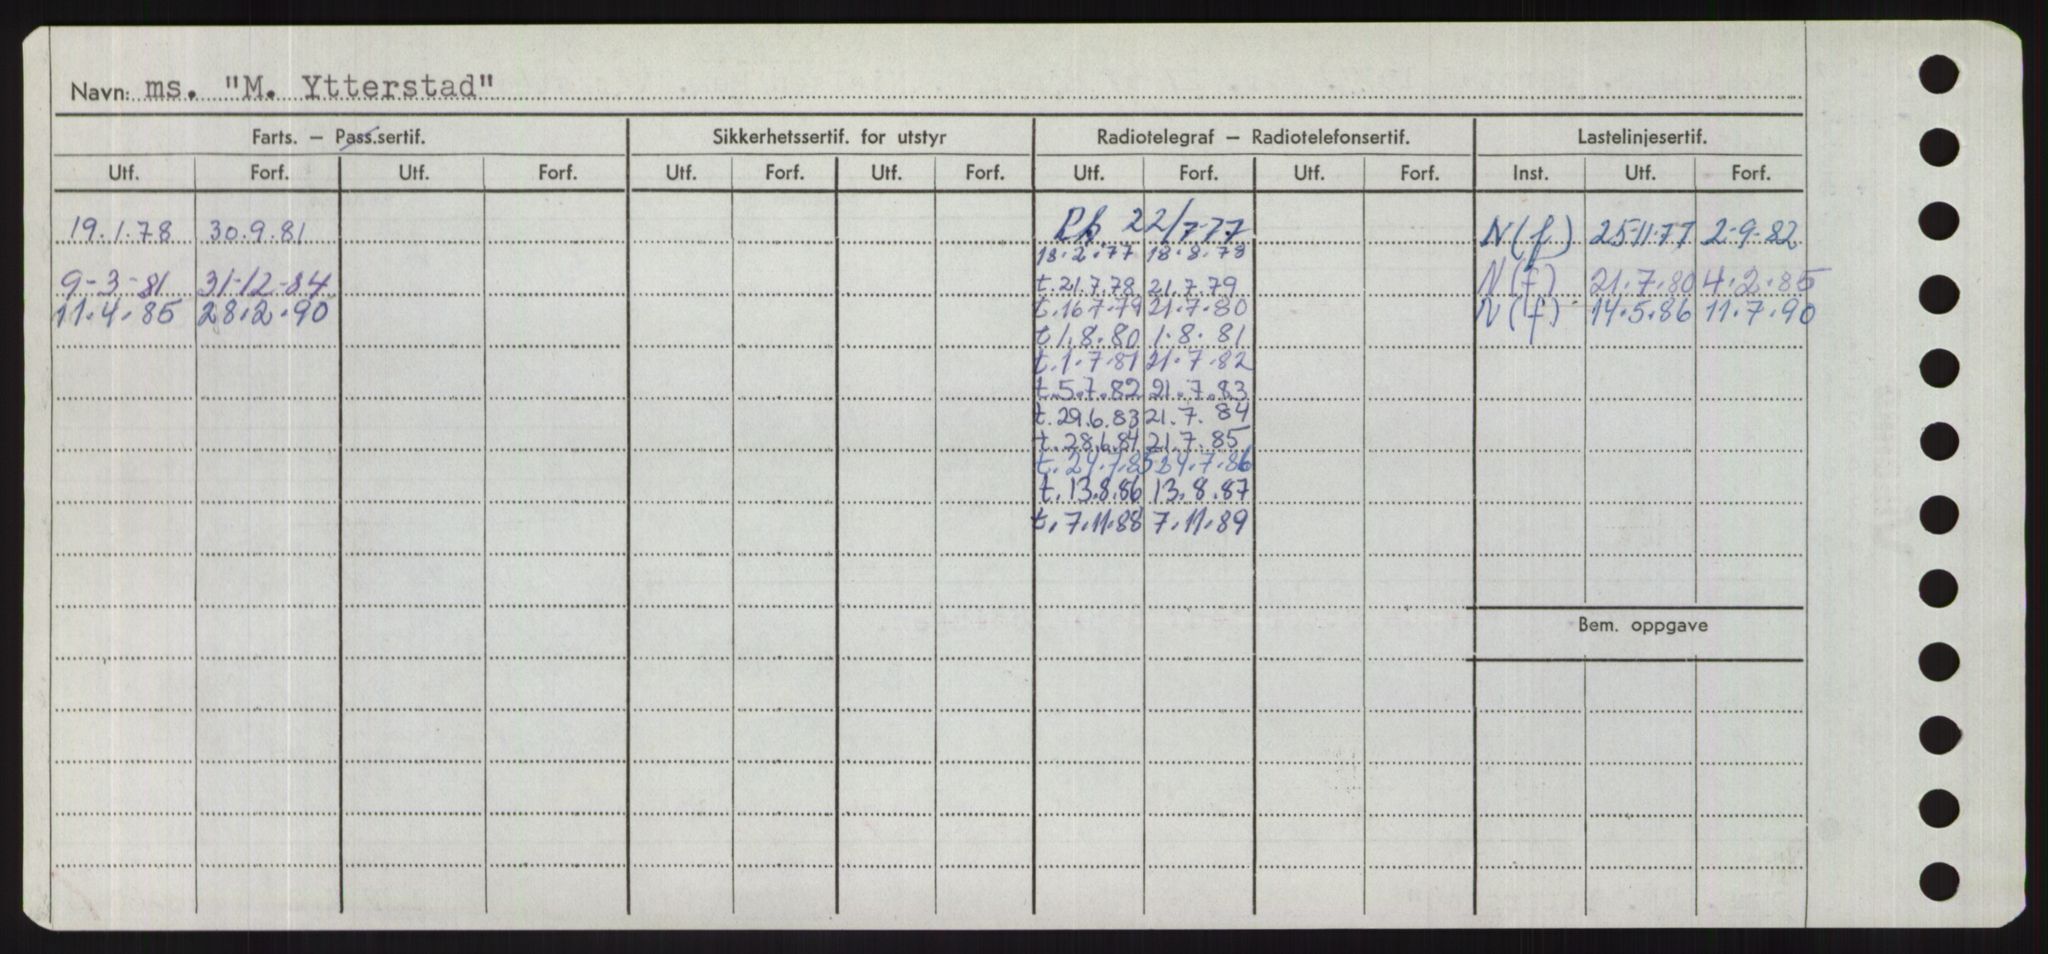 Navn: ms. "M. Ytterstad"
Farts. — Pass.sertif. Sikkerhetssertif. for utstyr Radiotelegraf — Radiotelefonsertif. Lastelinjesertif.
Utf. Forf. Utf. Forf. Utf. Forf. Utf. Forf. Utf. Forf. Utf. Forf. Inst. Utf. Forf.
19.1.78 30.9.81 22/7-77 N(f) 25-11-77 2-9-82
18.2.77 18.8.78
9-3-81 31-12-84 t.21.7.78 21.7.79 N(f) 21.7.80 4.2.85
11.4.85 28.2.90 t.16.7.79 21.7.80 N(f) 14.5.86 11.7.90
t.1.8.80 1.8.81
t.1.7.81 21.7.82
t.5.7.82 21.7.83
t.29.6.83 21.7.84
t.28.6.84 21.7.85
t.24.7.85 24.7.86
t.13.8.86 13.8.87
t.7.11.88 7.11.89
Bem. oppgave